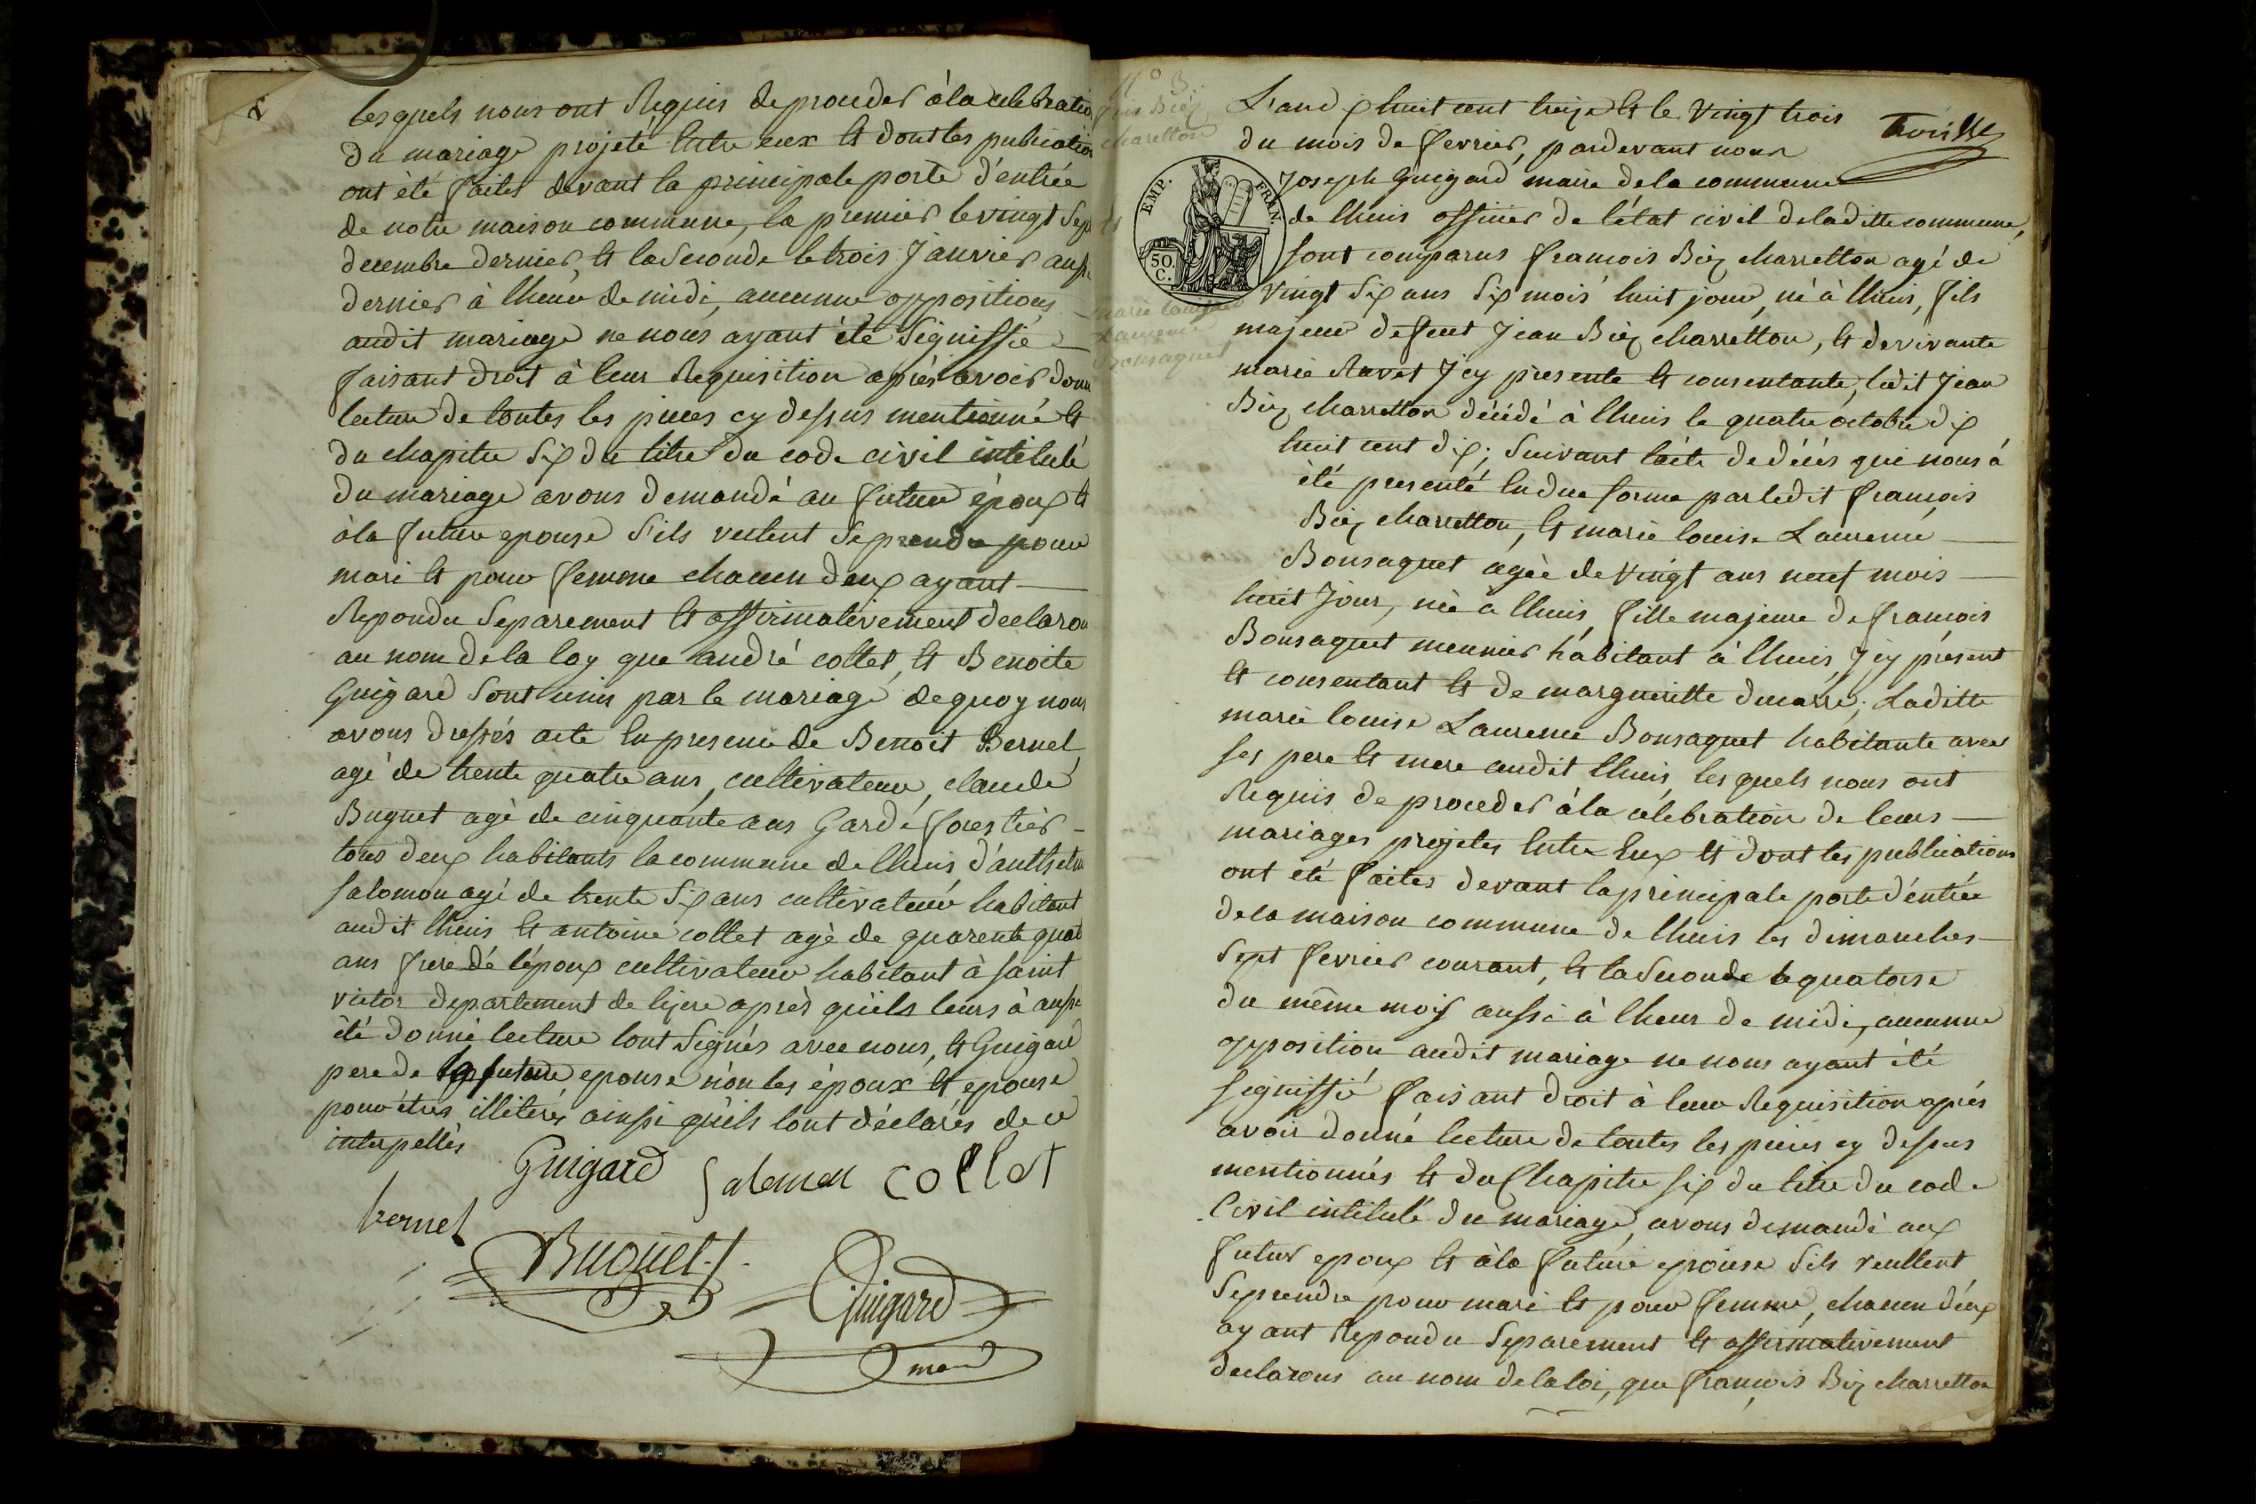 2
lesquels nous ont Requis de proceder à la celebratio
du mariage projeté entre eux et dont les publication
ont été faites devant la principale porte d'entrée
de notre maison commune, la premier le vingt Sep
decembre dernier, et la Seconde le trois Janvier aussi
dernier à lheure de midi, aucunne oppositions
audit mariage ne nous ayant été Signiffié
faisant droit à leur Requisition après avoir donn
lecture de toutes les pieces cy dessus mentionné et
du chapitre Six du titre du code civil intitulé
du mariage avons demandé au futur époux et
à la future epouse S'ils veulent Se prendre pour
mari et pour femme chacun deux ayant
Repondu Separement et affirmativement declaron
au nom de la loy que andré collet, et Benoite
Guigard Sont unis par le mariage de quoy nous
avons dressés acte En presence de Benoit Bernet
agé de trente quatre ans, cultivateur, claude
Buguet agé de cinquante ans Garde forestier
tous deux habitants la commune de lhuis, d'anthelm
Salomon agé de trente Six ans cultivateur habitant
audit lhuis et antoine collet agé de quarente quat
ans frere de lépoux cultivateur habitant à Saint
victor departement de lizere après qu'ils leurs à aussi
été donné lecture lont Signés avec nous, et Guigard
pere de la future epouse non les époux et epouse
pour êtres illiterés ainsi qu'ils lont déclarés de ce
interpellés
Guigard Salomon collet
bernet
Buguet
Guigard
maire
N° 3.
Biez
charetton
et
marie louise
Laurence
Bonsaquet
EMP. FRAN.
50 C.
L'an dix huit cent treize et le vingt trois
du mois de fevrier, pardevant nous
Joseph Guigard maire de la commune
de lhuis officier de l'état civil de laditte commune,
Sont comparus francois Biez charretton agé de
vingt Six ans Six mois huit jour, né à lhuis, fils
majeur de feut Jean Biez charretton, et de vivante
marie Ravet Jcy presente et consentante, ledit Jean
Biez charretton décédé à lhuis le quatre octobre dix
huit cent dix; Suivant lacte de décés qui nous à
été presenté En due forme par ledit francois
Biez charretton, et marie louise Laurence
Bonsaquet agée de vingt ans neuf mois
huit Jour, née à lhuis, fille majeure de francois
Bonsaquet meunier habitant à lhuis, Jcy présent
et consentant et de margueritte ducarre; Laditte
marie louise Laurence Bonsaquet habitante avec
Ses pere et mere audit lhuis, lesquels nous ont
Requis de proceder à la célébration de leurs
mariages projetés Entre Eux et dont les publications
ont été faites devant la principale porte d'éntrée
de la maison commune de lhuis les dimanches
Sept fevrier courant, et la Seconde le quatorse
du même mois aussi à lheur de midi, aucunne
opposition audit mariage ne nous ayant été
Signiffié faisant droit à leur Requisition après
avoir donné lecture de toutes les pieces cy dessus
mentionnés et du Chapitre Six du titre du code
Civil intitulé du mariage, avons demandé aux
futur epoux et à la future epouse Sils veullent
Se prendre pour mari et pour femme, chacun d'eux
ayant Repondu Separement et affirmativement
declarons au nom de la loi, que francois Biez charretton